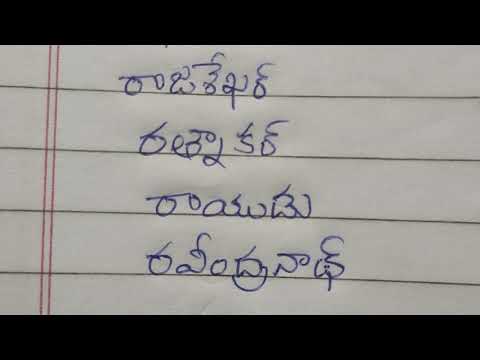 రాజశేఖర్
రత్నాకర్
రాయుడు
రవీంద్రనాథ్